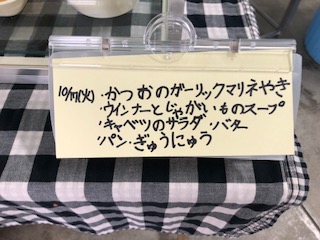 10/17(火)・かつおのガーリックマリネやき
・ウインナーとじゃがいものスープ
・キャベツのサラダ・バター
・パン・ぎゅうにゅう